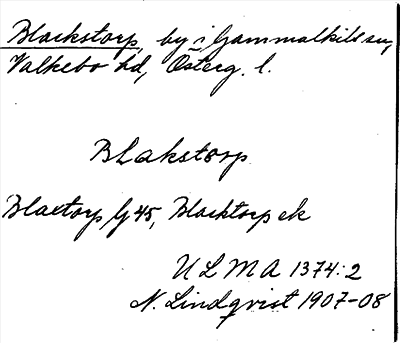 Blackstorp, by i Gammalkils sn,
Valkebo hd, Österg. l.
Blakstorp
Blaxtorp G 45, Blacktorp ek
ULMA 1374:2
N. Lindqvist 1907-08